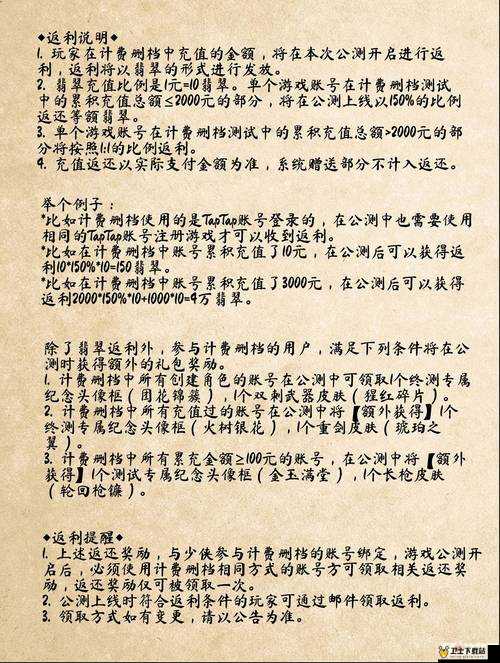 ◆返利说明◆
1. 玩家在计费删档中充值的金额，将在本次公测开启进行返
利，返利将以翡翠的形式进行发放。
2. 翡翠充值比例是1元=10翡翠。单个游戏账号在计费删档测试
中的累积充值总额≤2000元的部分，将在公测上线以150%的比例
返还等额翡翠。
3. 单个游戏账号在计费删档测试中的累积充值总额>2000元的部
分将按照1:1的比例返利。
4. 充值返还以实际支付金额为准，系统赠送部分不计入返还。
举个例子：
*比如计费删档使用的是TapTap账号登录的，在公测中也需要使用
相同的TapTap账号注册游戏才可以收到返利。
*比如在计费删档中账号累积充值了10元，在公测后可以获得返
利10*150%*10=150翡翠。
*比如在计费删档中账号累积充值了3000元，在公测后可以获得
返利2000*150%*10+1000*10=4万翡翠。
除了翡翠返利外，参与计费删档的用户，满足下列条件将在公
测时获得额外的礼包奖励。
1. 计费删档中所有创建角色的账号在公测中可领取1个终测专属
纪念头像框（团花锦簇），1个双刺武器皮肤（猩红碎片）。
2. 计费删档中所有充值过的账号在公测中将【额外获得】1个
终测专属纪念头像框（火树银花），1个重剑皮肤（琥珀之
翼）。
3. 计费删档中所有累充金额≥100元的账号，在公测中将【额外
获得】1个测试专属纪念头像框（金玉满堂），1个长枪皮肤
（轮回枪镰）。
◆返利提醒◆
1. 上述返还奖励，与少侠参与计费删档的账号绑定，游戏公测开
启后，必须使用计费删档相同方式的账号方可领取相关返还奖
励，返还奖励仅可被领取一次。
2. 公测上线时符合返利条件的玩家可通过邮件领取返利。
3. 领取方式如有变更，请以公告为准。
卫士下载站